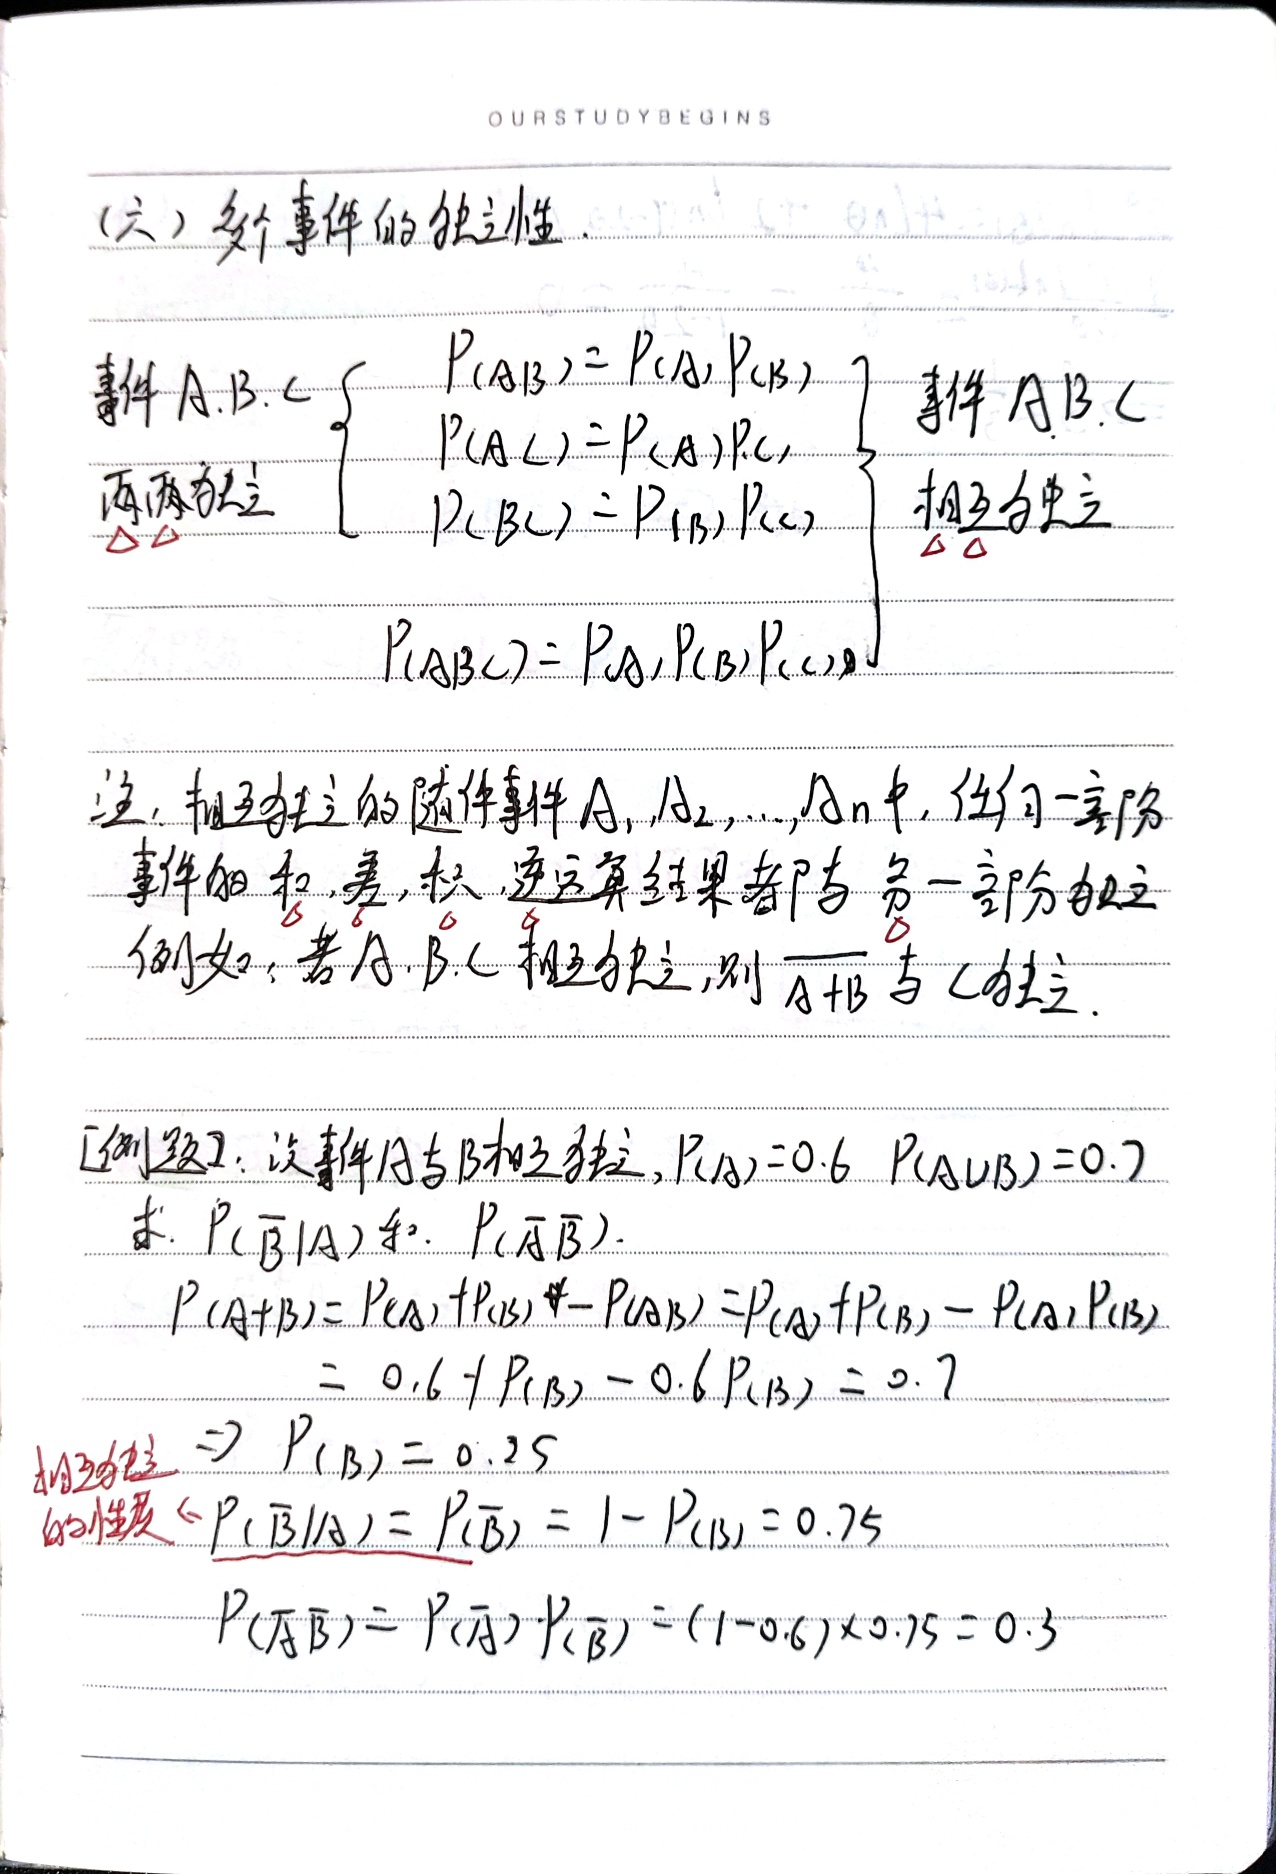 OURSTUDYBEGINS
(六) 多个事件的独立性.
事件 A.B.C
两两独立
P(AB)=P(A)P(B)
P(AC)=P(A)P(C)
P(BC)=P(B)P(C)
P(ABC)=P(A)P(B)P(C)
事件 A.B.C
相互独立
注: 相互独立的随件事件 A₁,A₂,...,An中, 任何一部分
事件的和,差,积,逆运算结果都与 另一部分独立
例如: 若 A.B.C 相互独立,则 \overline{A+B} 与 C独立.
[例题]: 设事件A与B相互独立, P(A)=0.6 P(A∪B)=0.7
求. P(B̅|A) 和. P(A̅B̅).
P(A+B)=P(A)+P(B)-P(AB)=P(A)+P(B)-P(A)P(B)
=0.6+P(B)-0.6P(B)=0.7
⇒ P(B)=0.25
相互独立
的性质 ← P(B̅|A)=P(B̅)=1-P(B)=0.75
P(A̅B̅)=P(A̅)·P(B̅)=(1-0.6)×0.75=0.3